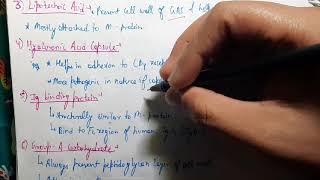 3. Lipoteichoic Acid - Present cell wall of GAS &
* Mostly attached to M - protein
4) Hyaluronic Acid Capsule -
* Helps in adhesion to CD44
* More pathogenic in nature if
5) Ig binding protein -
↳ Structurally similar to M -
↳ Bind to Fc region of human Ig
6) Group - A carbohydrate -
↳ Always present peptidoglycan layer of cell